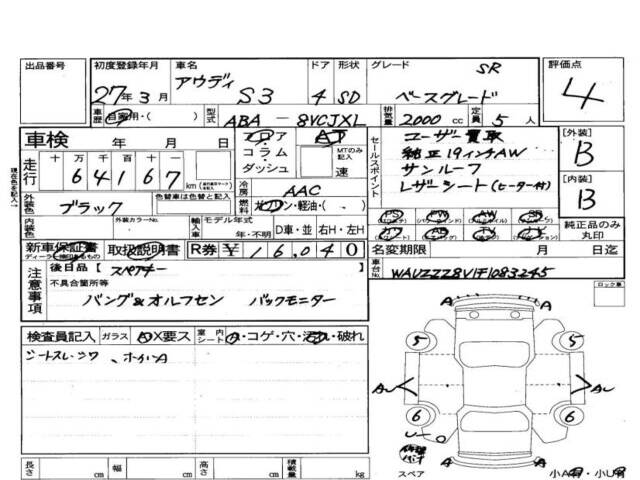 出品番号
初度登録年月 27年3月
車名 アウディ S3
ドア 4
形状 SD
グレード SR ベースグレード
評価点 4
車歴 自家用・( )
型式 ABA-8VCJXL
排気量 2000 cc
定員 5人
車検 年 月 日
現在色を記入→
走行 十万千百十一
64167 km
フロア コラム ダッシュ
AT
MTのみ記入 速
冷房 AAC
燃料 ガソリン・軽油・( )
セールスポイント
ユーザー買取
純正19インチAW
サンルーフ
レザーシート(ヒーター付)
PS PW AW SR
カワ AB TV ナビ
[外装] B
[内装] B
純正品のみ丸印
外装色 ブラック
外装カラーNo.
内装色
輸入車 モデル年式 年・不明
D車・並 右H・左H
新車保証書
取扱説明書
R券 ¥16,040
名変期限 月 日迄
車台No. WAUZZZ8V1F1083245
注意事項
後日品[ スペアキー ]
不具合箇所等
バング&オルフセン バックモニター
ロック車
検査員記入 ガラス A・X要ス 室内シート A・コゲ・穴・汚れ・破れ
シートスレ・シワ、ホイルA
A A
5 5
AU AU
6 6
U- O
A A
スペア
小A有・小U有
長さ cm 幅 cm 高さ cm 積載量 kg